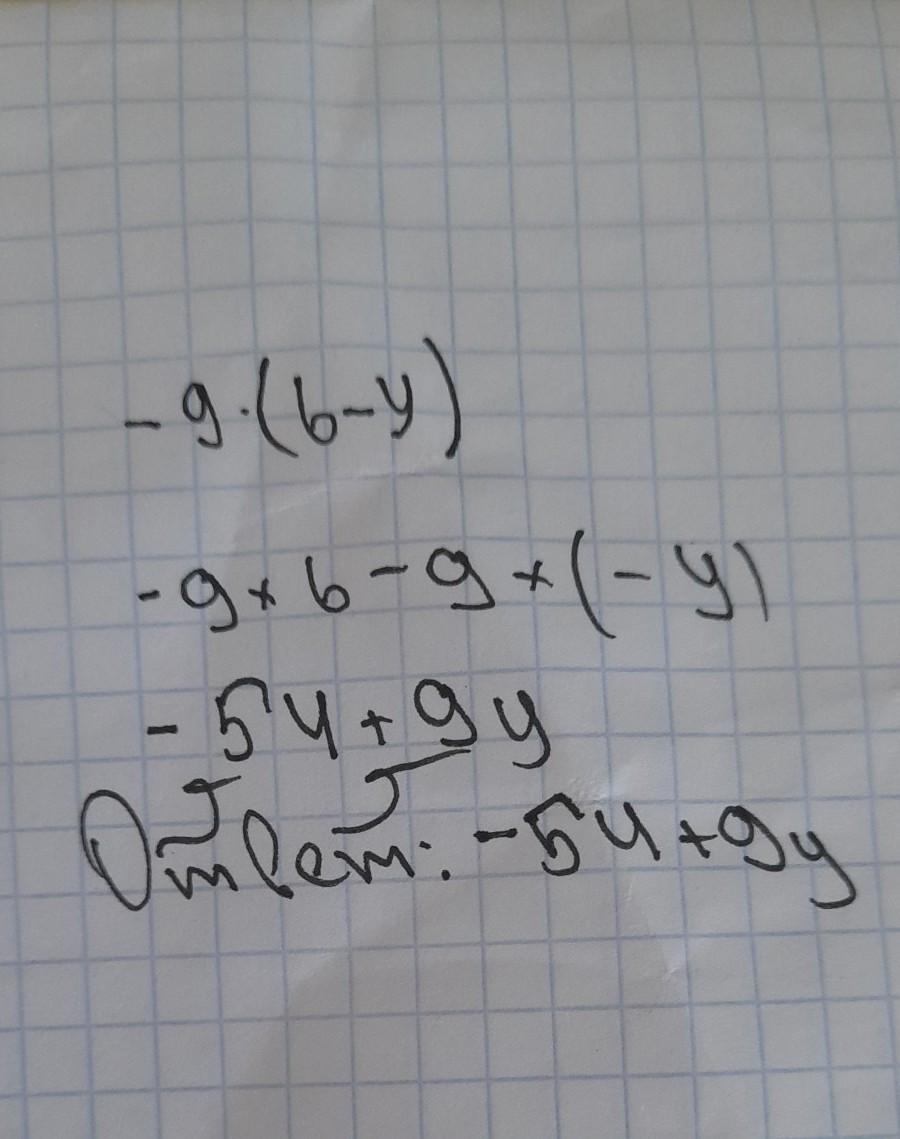 -9·(6-y)
-9×6-9×(-y)
-54+9y
Ответ: -54+9y